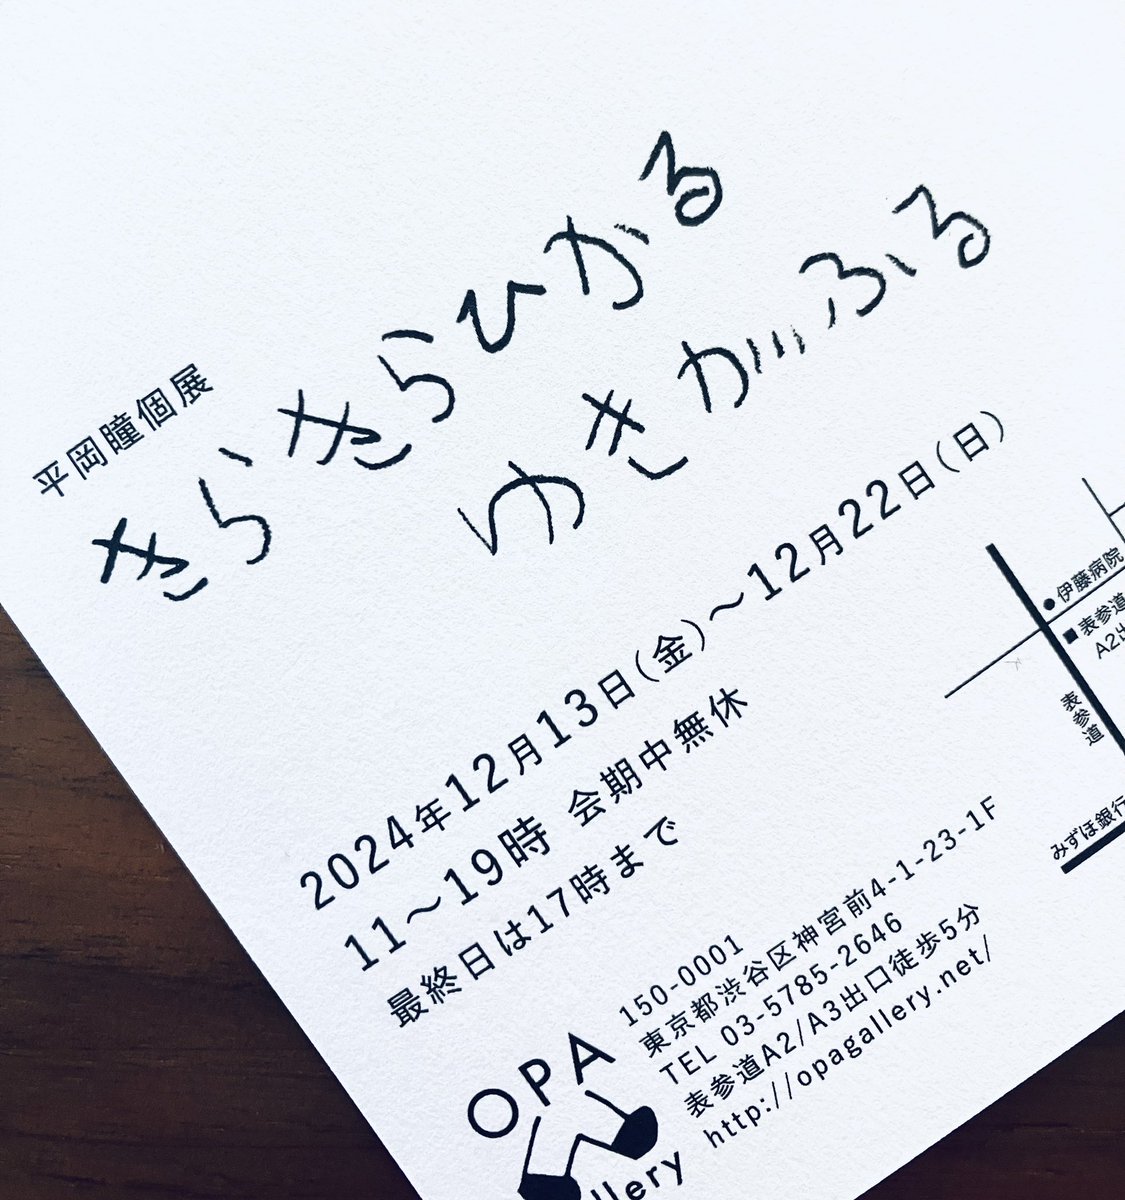 平岡瞳個展
きらきらひかる
ゆきがふる
2024年12月13日(金)〜12月22日(日)
11〜19時 会期中無休
最終日は17時まで
OPA
llery
150-0001
東京都渋谷区神宮前4-1-23-1F
TEL 03-5785-2646
表参道A2/A3出口徒歩5分
http://opagallery.net/
●伊藤病院
■表参道
A2出
表参道
みずほ銀行